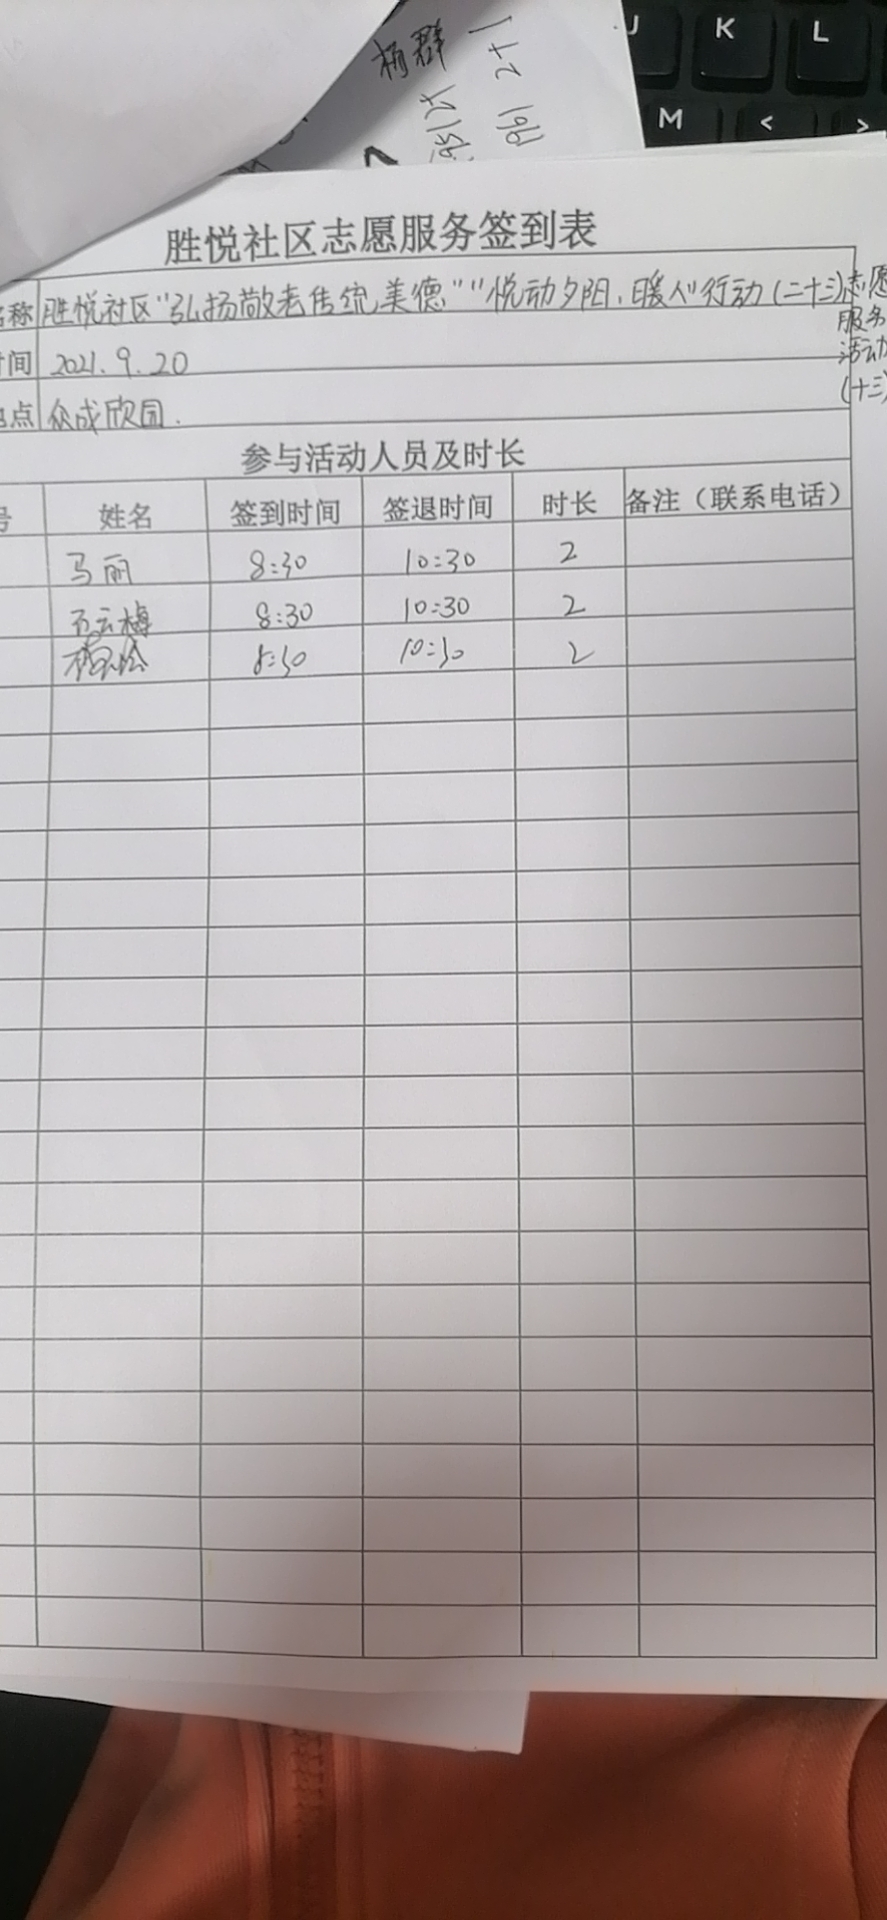 J K L
M < >
杨群
胜悦社区志愿服务签到表
名称 胜悦社区"弘扬敬老传统美德""悦动夕阳,暖人心"行动(二十三)志愿
服务
活动
(十三)
时间 2021.9.20
地点 众成欣园.
参与活动人员及时长
号 姓名 签到时间 签退时间 时长 备注(联系电话)
马丽 8:30 10:30 2
石云梅 8:30 10:30 2
8:30 10:30 2